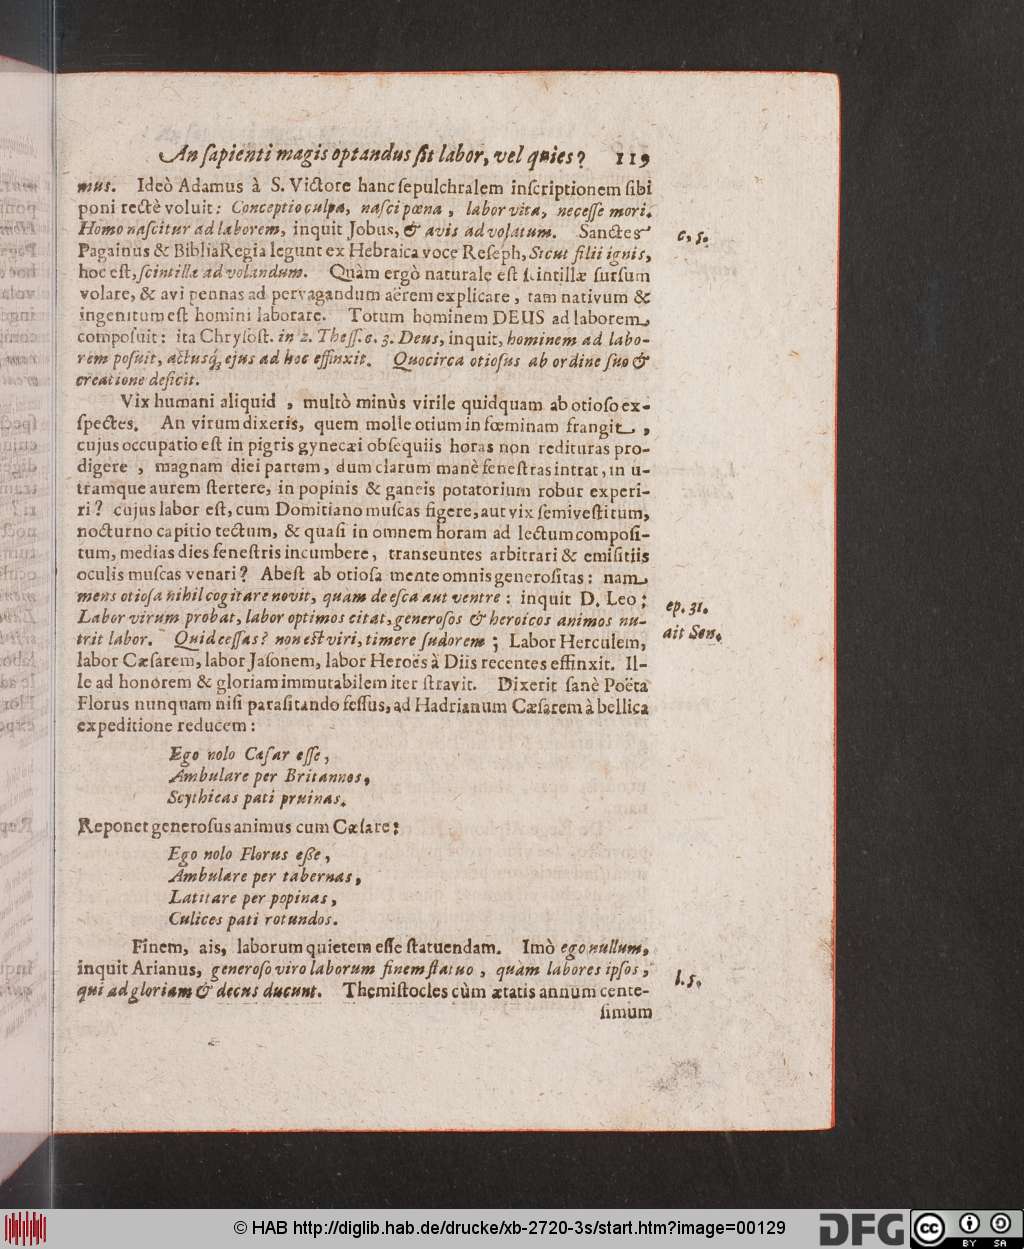 An sapienti magis optandus sit labor, vel quies? 119
mus. Ideò Adamus à S. Victore hanc sepulchralem inscriptionem sibi
poni rectè voluit: Conceptio culpa, nasci pœna, labor vita, necesse mori.
Homo nascitur ad laborem, inquit Jobus, & avis ad volatum. Sanctes
c. 5.
Pagninus & Biblia Regia legunt ex Hebraica voce Reseph, Sicut filii ignis,
hoc est, scintillæ ad volandum. Quàm ergò naturale est scintillæ sursum
volare, & avi pennas ad pervagandum aërem explicare, tam nativum &
ingenitum est homini laborare. Totum hominem DEUS ad laborem
composuit: ita Chrysost. in 2. Thess. c. 3. Deus, inquit, hominem ad labo-
rem posuit, actusq́; ejus ad hoc effinxit. Quocirca otiosus ab ordine suo &
creatione deficit.
Vix humani aliquid, multò minùs virile quidquam ab otioso ex-
spectes. An virum dixeris, quem molle otium in fœminam frangit,
cujus occupatio est in pigris gynecæi obsequiis horas non redituras pro-
digere, magnam diei partem, dum clarum manè fenestras intrat, in u-
tramque aurem stertere, in popinis & ganeis potatorium robur experi-
ri? cujus labor est, cum Domitiano muscas figere, aut vix semivestitum,
nocturno capitio tectum, & quasi in omnem horam ad lectum composi-
tum, medias dies fenestris incumbere, transeuntes arbitrari & emisitiis
oculis muscas venari? Abest ab otiosa mente omnis generositas: nam
mens otiosa nihil cogitare novit, quàm de esca aut ventre: inquit D. Leo:
ep. 31.
Labor virum probat, labor optimos citat, generosos & heroicos animos nu-
ait Sen.
trit labor. Quid cessas? non est viri, timere sudorem; Labor Herculem,
labor Cæsarem, labor Jasonem, labor Heroës à Diis recentes effinxit. Il-
le ad honorem & gloriam immutabilem iter stravit. Dixerit sanè Poëta
Florus nunquam nisi parasitando fessus, ad Hadrianum Cæsarem à bellica
expeditione reducem:
Ego nolo Cæsar esse,
Ambulare per Britannos,
Scythicas pati pruinas.
Reponet generosus animus cum Cæsare:
Ego nolo Florus eße,
Ambulare per tabernas,
Latitare per popinas,
Culices pati rotundos.
Finem, ais, laborum quietem esse statuendam. Imò ego nullum,
inquit Arianus, generoso viro laborum finem statuo, quàm labores ipsos,
l. 5.
qui ad gloriam & decus ducunt. Themistocles cùm ætatis annum cente-
simum
© HAB http://diglib.hab.de/drucke/xb-2720-3s/start.htm?image=00129
DFG
cc
BY SA